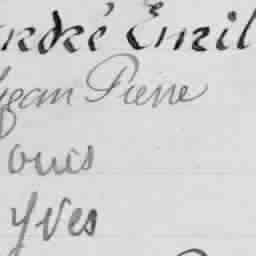 André Emil
Jean Pierre
ouis
Yves